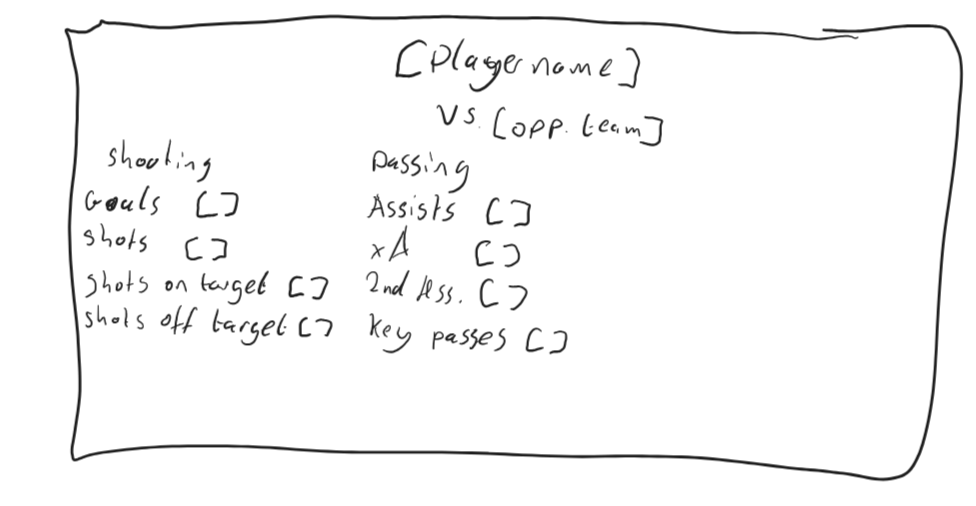 [Player name]
vs. [opp. team]
shooting
Goals []
shots []
shots on target []
shots off target []
passing
Assists []
xA []
2nd Ass. []
key passes []